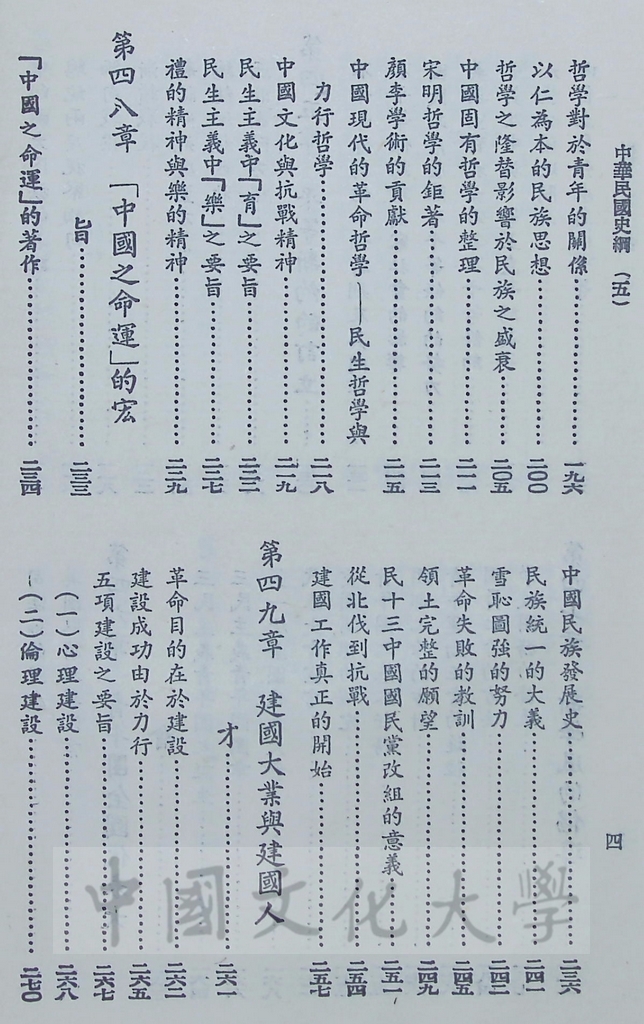 中華民國史綱（五）
四
哲學對於青年的關係…………一九六
以仁為本的民族思想…………二〇〇
哲學之隆替影響於民族之盛衰…………二〇五
中國固有哲學的整理…………二一一
宋明哲學的鉅著…………二一三
顏李學術的貢獻…………二一五
中國現代的革命哲學——民生哲學與
力行哲學…………二一八
中國文化與抗戰精神…………二一九
民生主義中「育」之要旨…………二二二
民生主義中「樂」之要旨…………二二七
禮的精神與樂的精神…………二二九
第四八章　「中國之命運」的宏
旨…………二三三
「中國之命運」的著作…………二三四
中國民族發展史…………二三六
民族統一的大義…………二四一
雪恥圖強的努力…………二四二
革命失敗的教訓…………二四五
領土完整的願望…………二四九
民十三中國國民黨改組的意義…………二五一
從北伐到抗戰…………二五四
建國工作真正的開始…………二五七
第四九章　建國大業與建國人
才…………二六一
革命目的在於建設…………二六二
建設成功由於力行…………二六五
五項建設之要旨…………二六七
（一）心理建設…………二六八
（二）倫理建設…………二七〇
中國文化大學